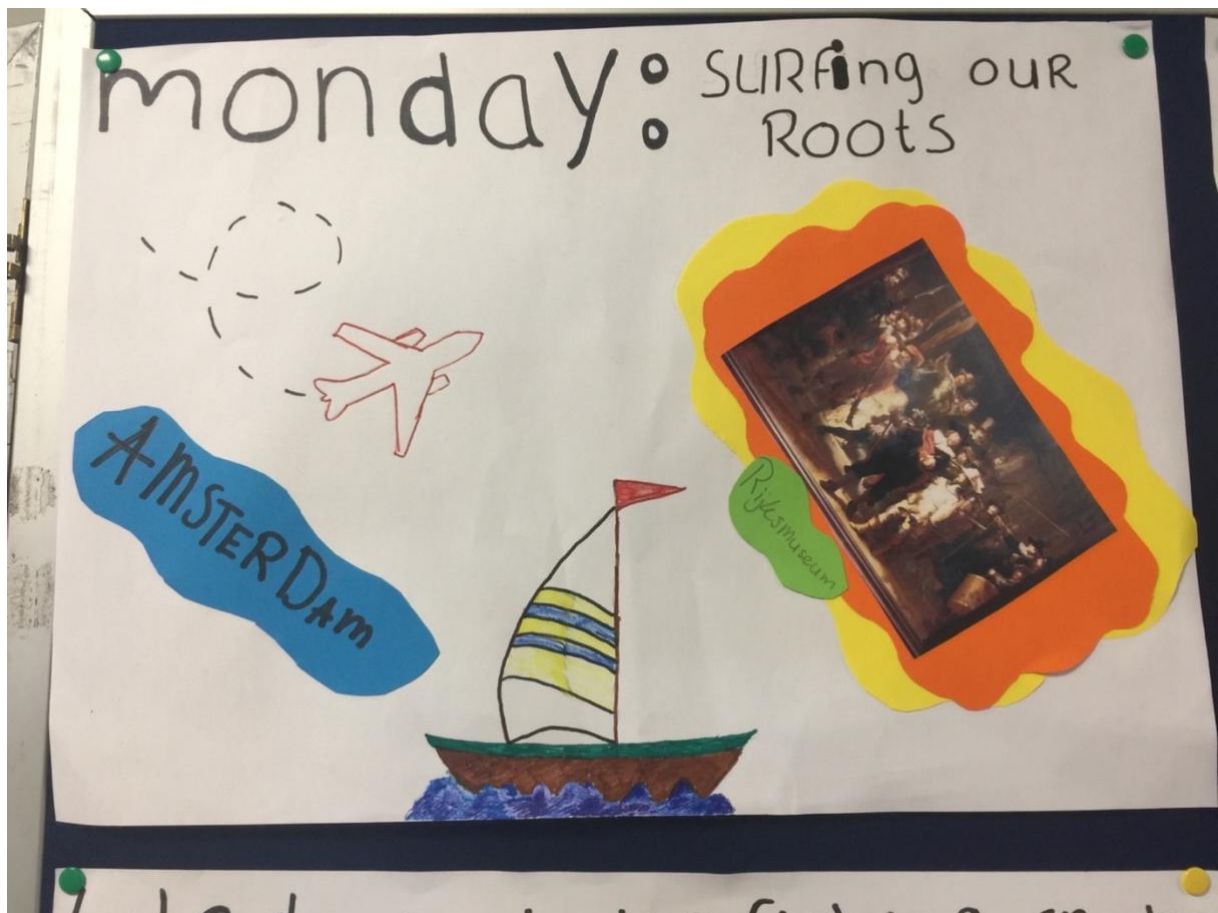 monday: SURFing OUR
Roots
AMSTERDam
Rijksmuseum